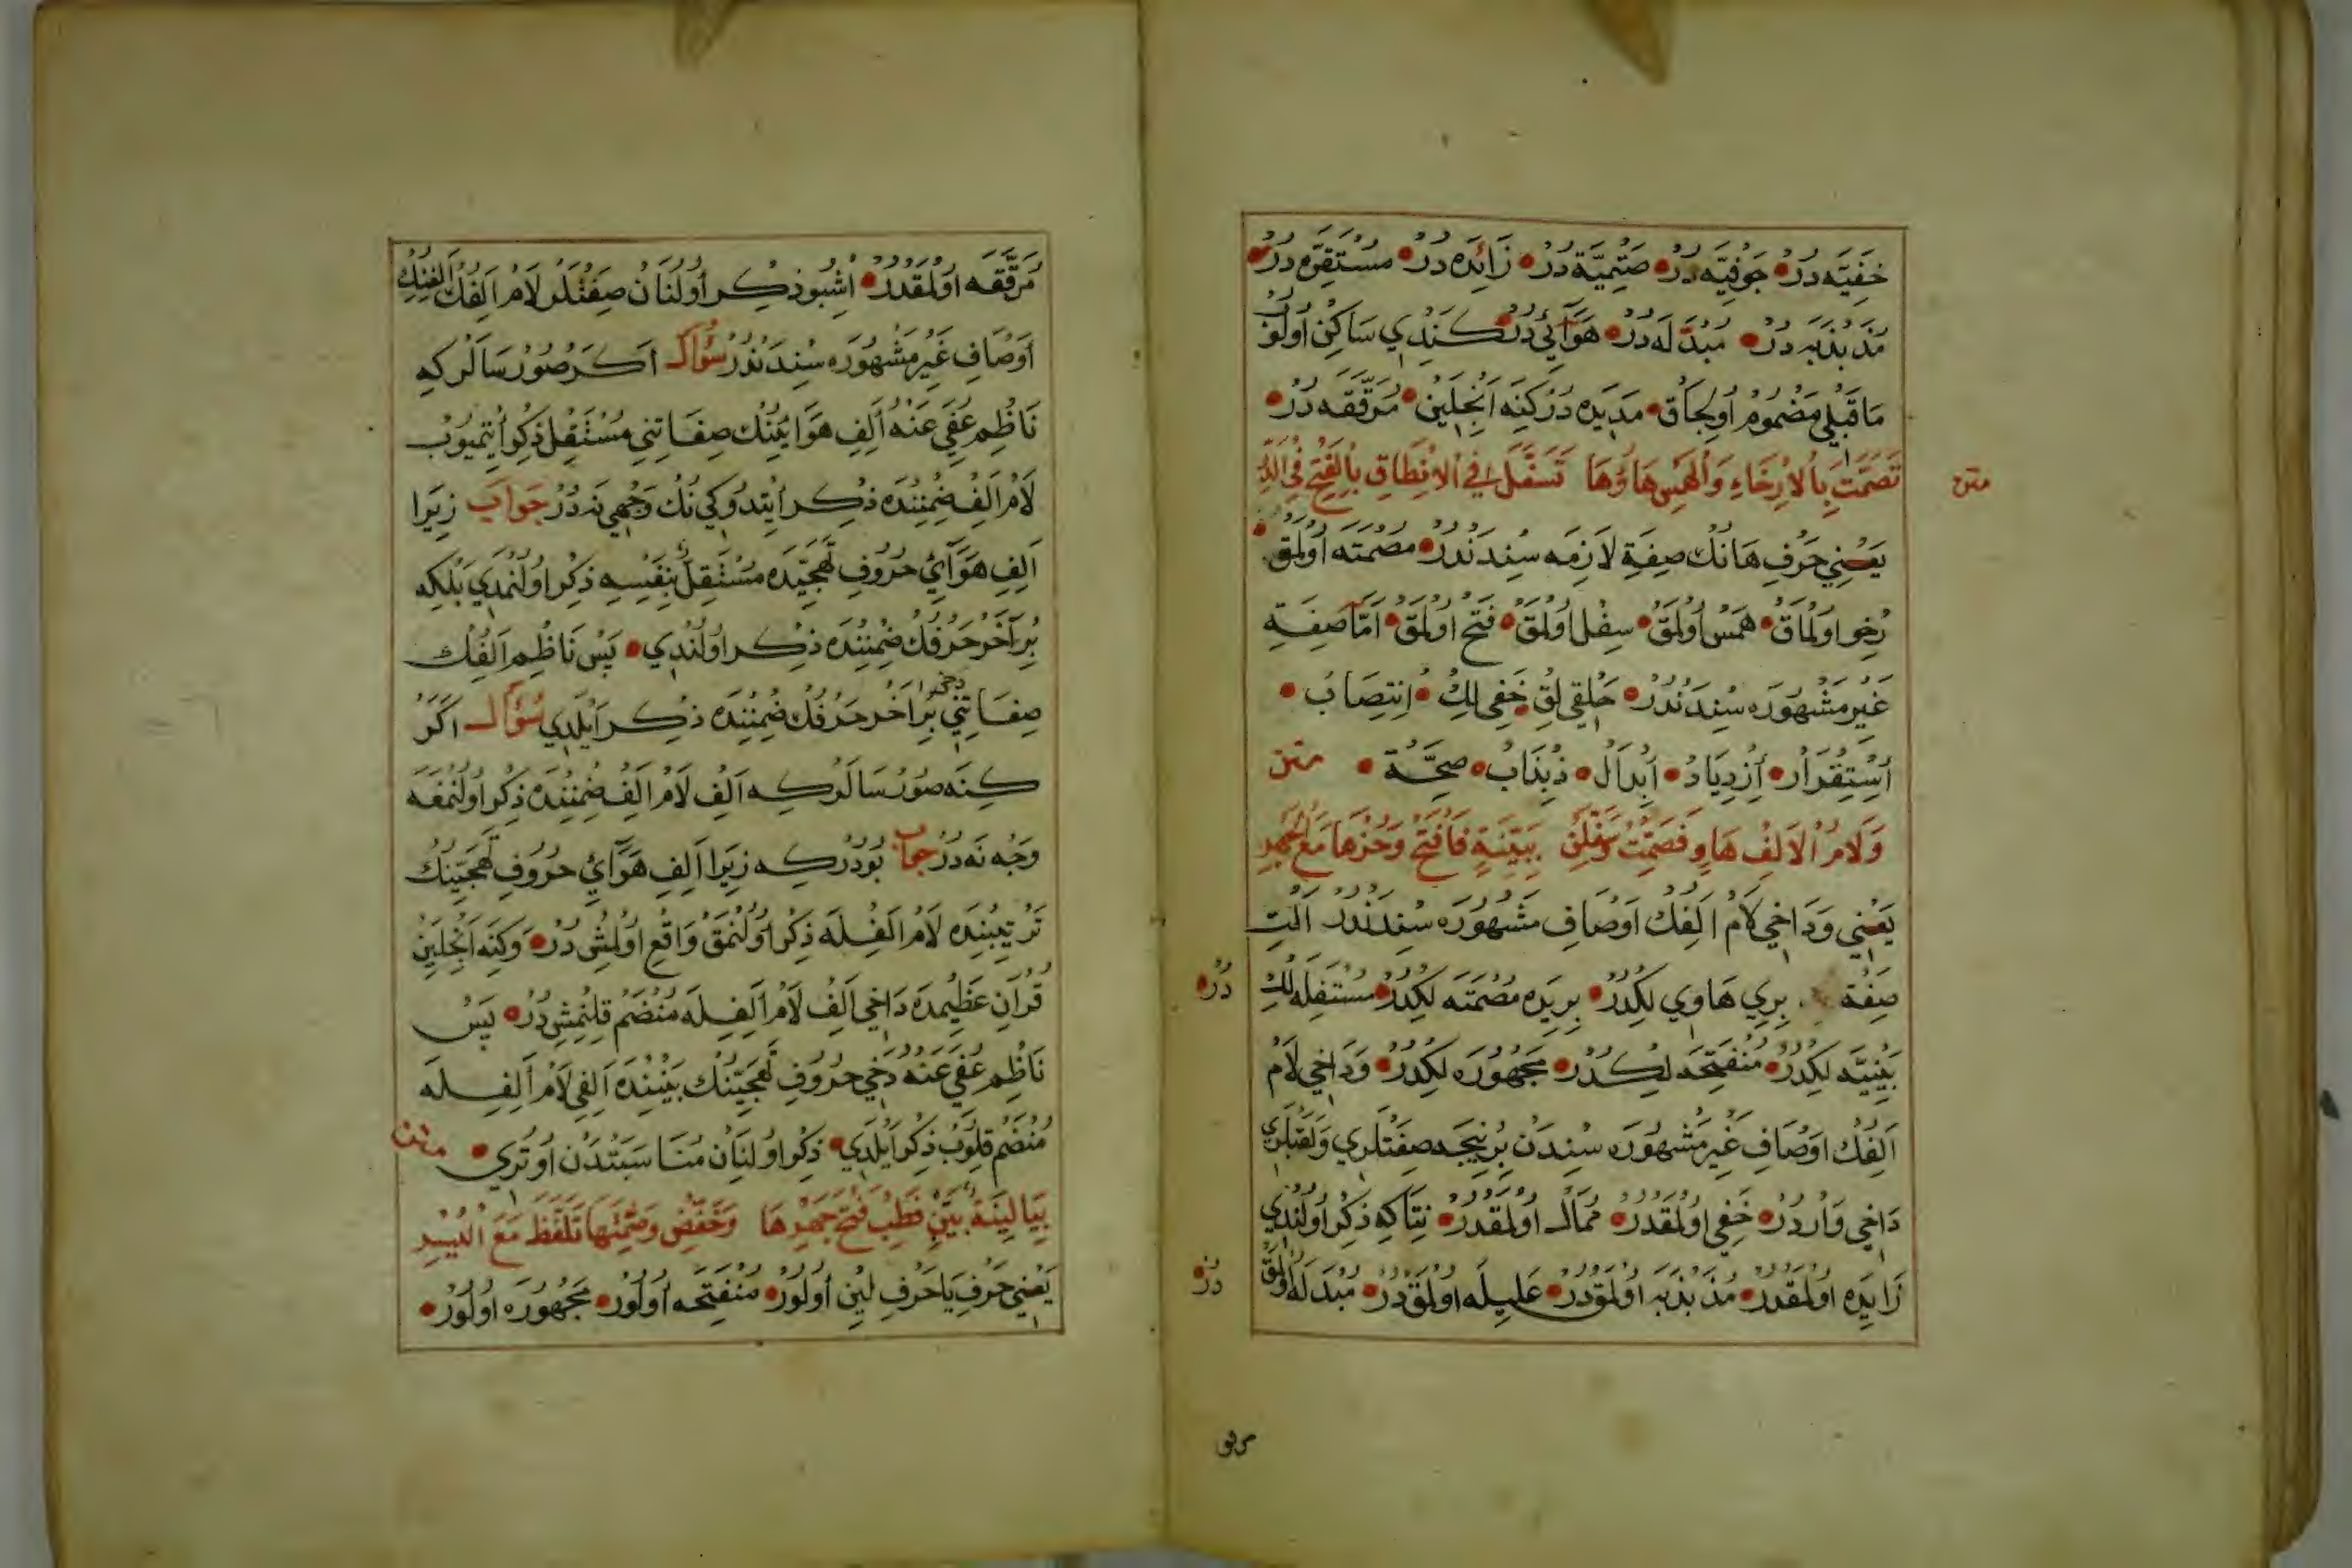 خَفِيَّه دُرْ جَوْفِيَّه دُرْ صَتْمِيَّة دُرْ زَائِدَه دُرْ مُسْتَقِرَّه دُرْ
مُذَبْذَبَه دُرْ مُبْدَلَه دُرْ هَوَآئِي دُرْ كَنْدِي سَاكِنْ اُولُوبْ
مَاقَبْلِي مَضْمُومْ اُولِجَاقْ مَدِيَده دُرْ كِنَه اَنْجِلَيِنْ مُرَقَّقَه دُرْ
متن
تَصَمَّتْ بِاْلاِرْخَاءِ وَاْلهَمْسِ هَاؤُهَا تَسَفَّلَ فِي اْلاِنْطَاقِ بِاْلفَتْحِ
يَعْنِي حَرْفِ هَانُكْ صِفَةِ لاَزِمَه سِنْدَنْدُرْ مُصْمَتَه اُولْمَقْ
رُخِو اُولْمَاقْ هَمْسْ اُولْمَقْ سِفْلْ اُولْمَقْ فَتْحْ اُولْمَقْ اَمَّا صِفَةِ
غَيْرِ مَشْهُورَه سِنْدَنْدُرْ حَلْقِي لِقْ خَفِي لِكْ اِنْتِصَابْ
اِسْتِقْرَارْ اِزْدِيَادْ اِبْدَالْ ذِبْذَابْ صِحَّةْ متن
وَلاَمُ اْلاَلِفْ هَاوٍ فَصَمِّتْ وَسَفِّلَنْ بَيْنِيَةٍ فَافْتَحْ وَحُزْهَا مَعَ الْجَهْرِ
يَعْنِي وَدَاخِي لاَمْ اَلِفُكْ اَوْصَافِ مَشْهُورَه سِنْدَنْدُرْ اَلْتِ
صِفَة بِرِي هَاوِي لِكْدُرْ بِرِيَده مُصْمَتَه لِكْدُرْ مُسْتَفِلَه لِكْ دُرْ
بَيْنِيَّه لِكْدُرْ مُنْفَتِحَه لِكْدُرْ مَجْهُورَه لِكْدُرْ وَدَاخِي لاَمْ
اَلِفُكْ اَوْصَافِ غَيْرِ مَشْهُورَه سِنْدَنْ بِرْنِيجَه صِفَتْلَرِي وَلَقَبْلَرِي
دَاخِي وَارْدُرْ خَفِي اُولْمَقْدُرْ مُمَالْ اُولْمَقْدُرْ نِتَاكِه ذِكْرْ اُولُنْدِي
زَايِدَه اُولْمَقْدُرْ مُذَبْذَبَه اُولْمَقْدُرْ عَلِيلَه اُولْمَقْدُرْ مُبْدَلَه اُولْمَقْ دُرْ
مرقق
مُرَقَّقَه اُولْمَقْدُرْ اُشْبُو ذِكْرْ اُولُنَانْ صِفَتْلَرْ لاَمْ اَلِفُكْ اَلِفِنِكْ
اَوْصَافِ غَيْرِ مَشْهُورَه سِنْدَنْدُرْ سُؤَالْ اَكَرْ صُورْسَالَرْ كِه
نَاظِمِ عُفِيَ عَنْهُ اَلِفِ هَوَايِنُكْ صِفَاتِنِي مُسْتَقِلْ ذِكْرْ اِتْمَيُوبْ
لاَمْ اَلِفْ ضِمْنِنْدَه ذِكْرْ اِيتْدُوكِي نُكْ وَجْهِي نَه دُرْ جَوَابْ زِيرَا
اَلِفِ هَوَآئِي حُرُوفِ تَهَجِّيدَه مُسْتَقِلْ بِنَفْسِهِ ذِكْرْ اُولُنْمَدِي بَلْكِه
بِرْ آخَرْ حَرْفُكْ ضِمْنِنْدَه ذِكْرْ اُولُنْدِي پَسْ نَاظِمْ اَلِفُكْ
صِفَاتِنِي دخى بِرْ اخَرْ حَرْفُكْ ضِمْنِنْدَه ذِكْرْ اَيْلَدِي سُؤَالْ اَكَرْ
كِنَه صُورْسَالَرْ كِه اَلِفْ لاَمْ اَلِفْ ضِمْنِنْدَه ذِكْرْ اُولُنْمَغَه
وَجْه نَه دُرْ جواب بُودُرْ كِه زِيَرا اَلِفِ هَوَآئِي حُرُوفِ تَهَجِّينُكْ
تَرْتِيبِنْدَه لاَمْ اَلِفْلَه ذِكْرْ اُولُنْمَقْ وَاقِعْ اُولْمِشْ دُرْ وَكِنَه اَنْجِلَيِنْ
قُرْآنِ عَظِيمْدَه دَاخِي اَلِفْ لاَمْ اَلِفْلَه مُنْضَمْ قِلِنْمِشْ دُرْ پَسْ
نَاظِمِ عُفِيَ عَنْهُ دَخِي حُرُوفِ تَهَجِّينُكْ بَيْنِنْدَه اَلِفِي لاَمْ اَلِفِلَه
مُنْضَمْ قِلُوبْ ذِكْرْ اَيْلَدِي ذِكْرْ اُولُنَانْ مُنَاسَبَتْدَنْ اُوتُرِي متن
بِيَا لِينَةٍ بَيِّنْ فَطِبْ فَتْحَ جَهْرِهَا وَخَفِّضْ وَصَمِّتْهَا تَلَفَّظْ مَعَ الْيُسْرِ
يَعْنِي حَرْفِ يَا حَرْفِ لِينْ اُولُورْ مُنْفَتِحَه اُولُورْ مَجْهُورَه اُولُورْ